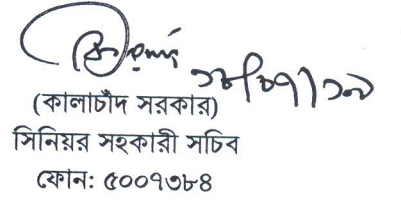 (কালাচাঁদ সরকার)
সিনিয়র সহকারী সচিব
ফোন: ৫০০৭৩৮৪